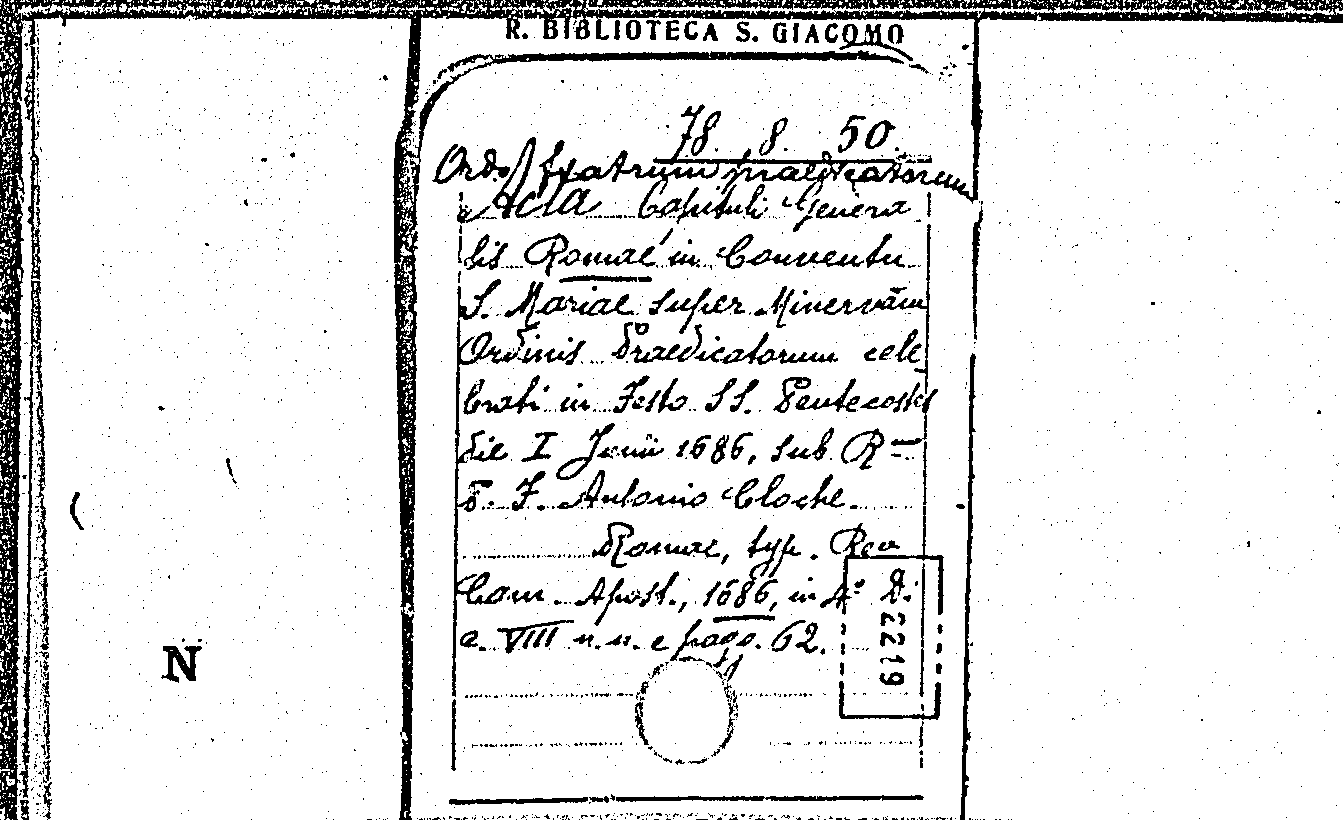 R. BIBLIOTECA S. GIACOMO
78. 8. 50.
Ordo fratrum praedicatorum
Acta Capituli Genera
lis Romae in Conventu
S. Mariae super Minervam
Ordinis Praedicatorum cele
brati in Festo SS. Pentecostes
die I Junii 1686, sub R
P. F. Antonio Cloche.
Romae, typ. Rev
Cam. Apost., 1686, in 4° di
c. VIII n. n. e pagg. 62.
22219
N